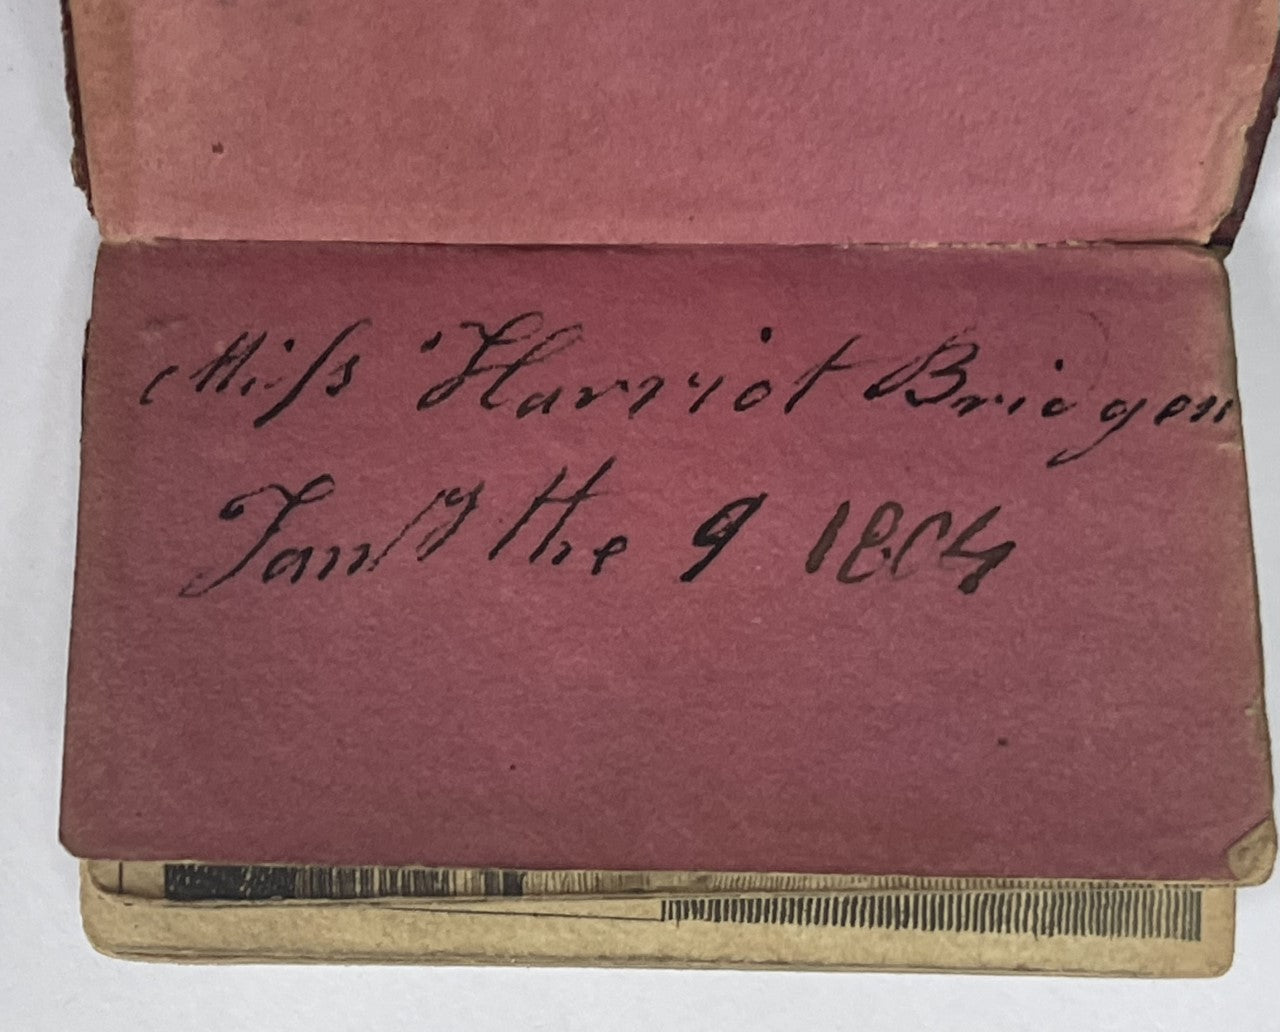 Miſs Harriot Bridgen
Janʸ the 9 1804